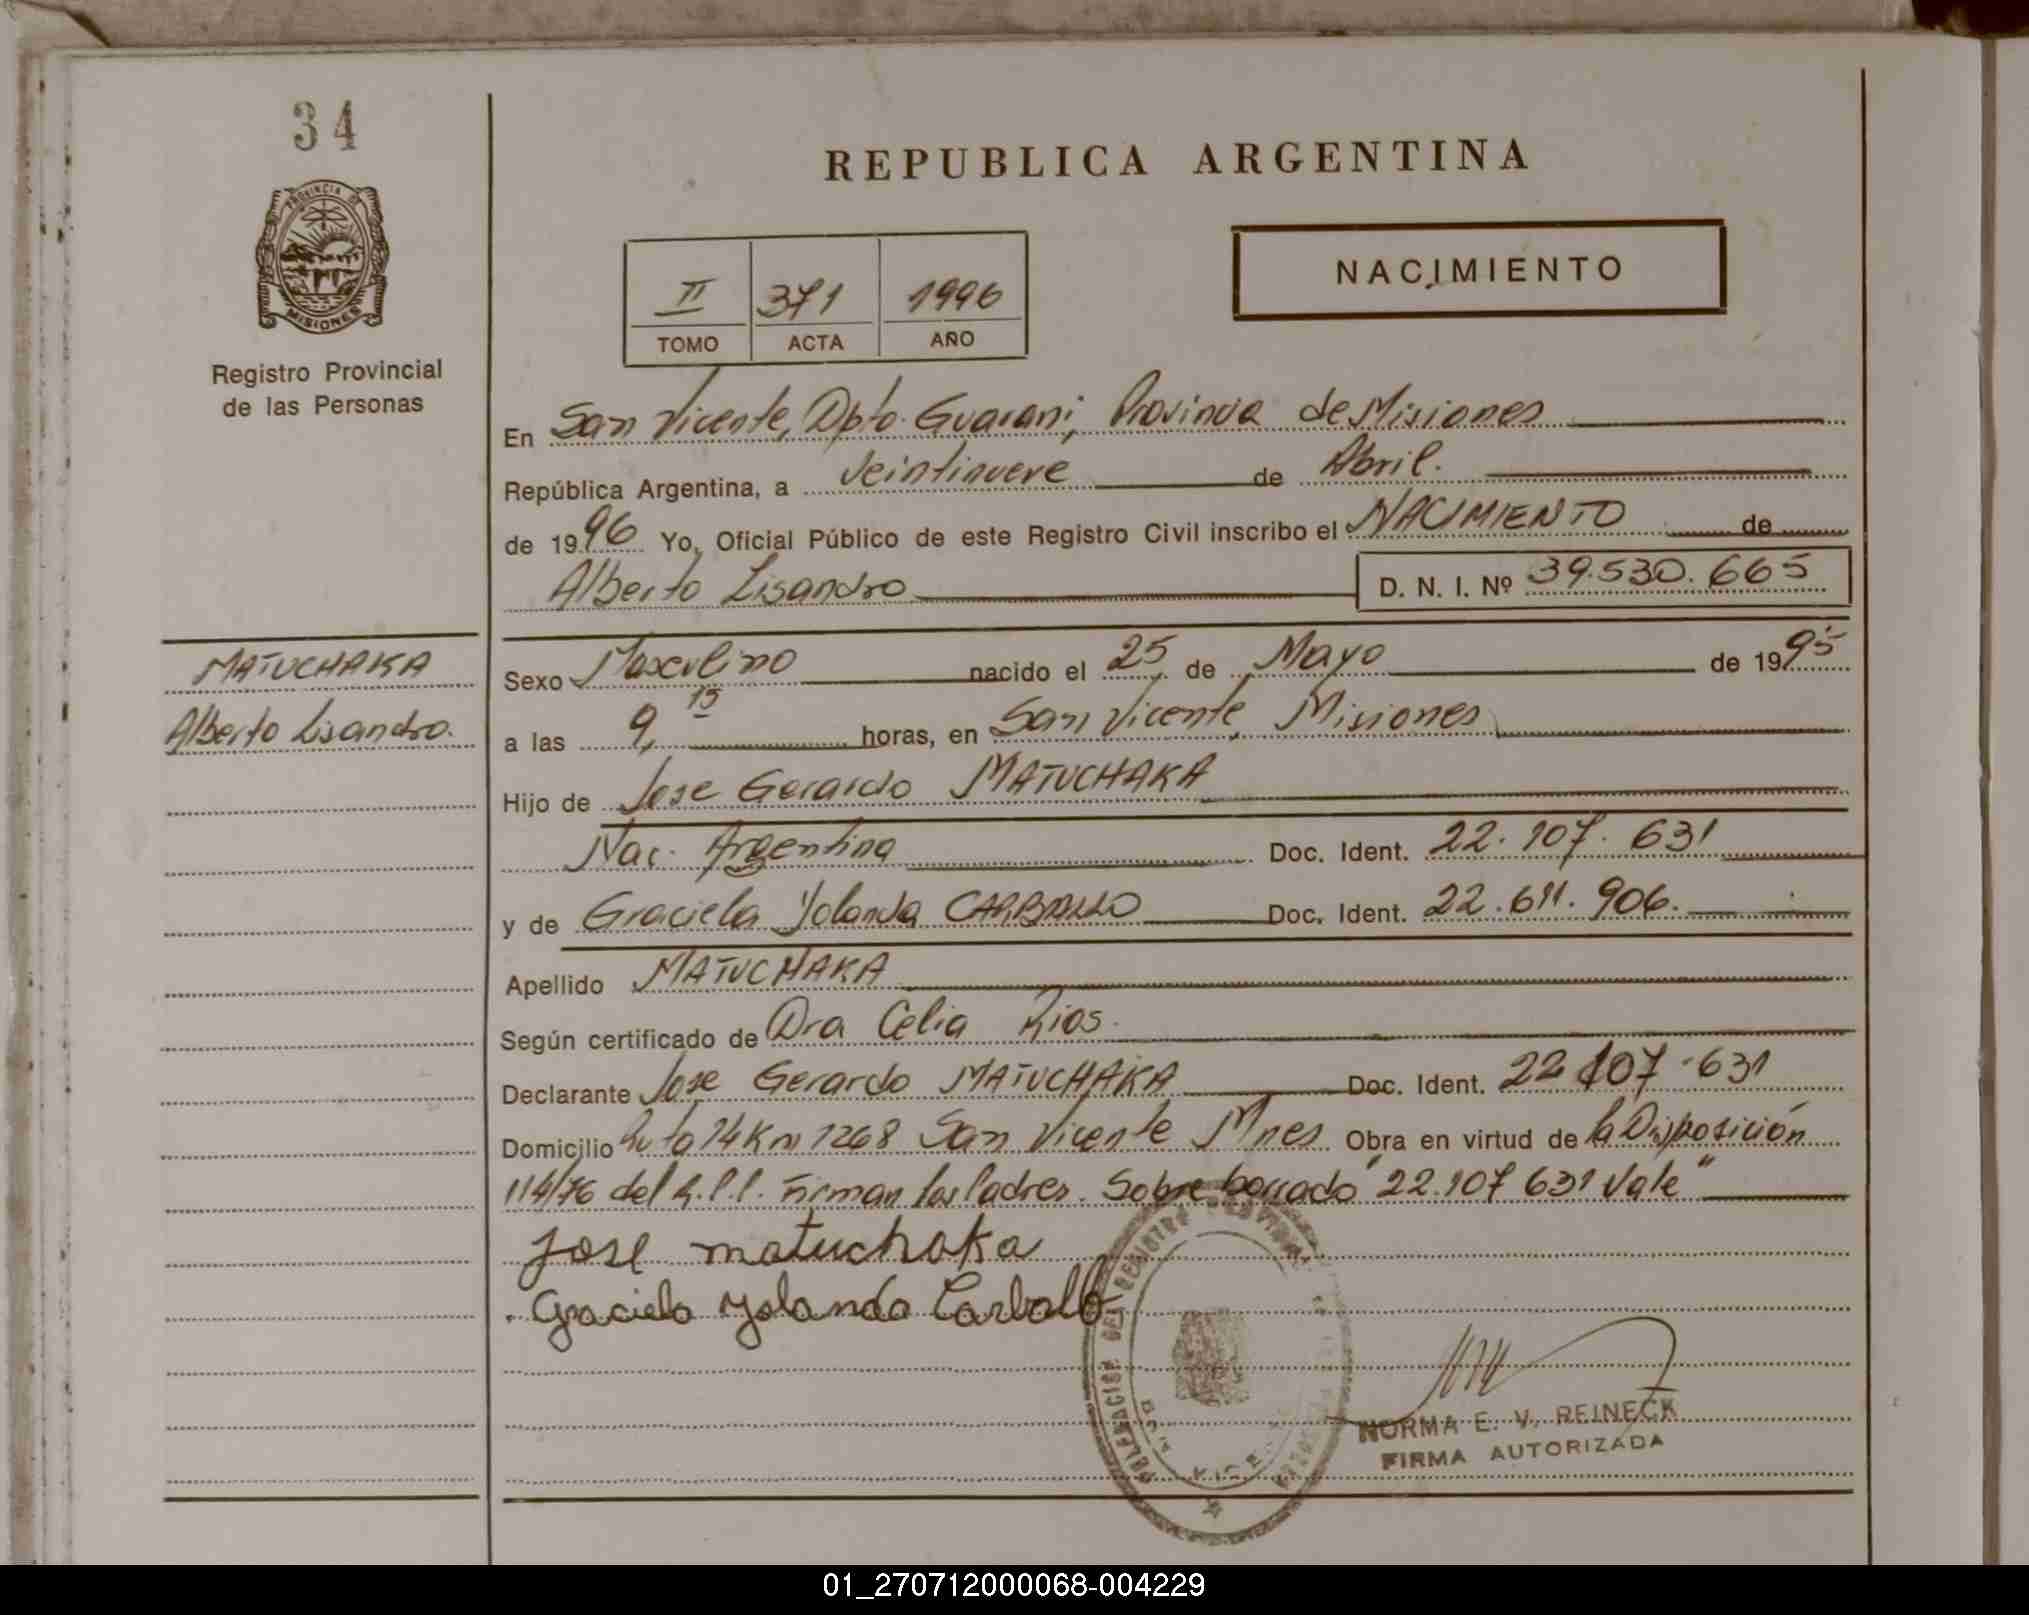 34
PROVINCIA DE
MISIONES
Registro Provincial
de las Personas
MATUCHAKA
Alberto Lisandro.
REPUBLICA ARGENTINA
II 371 1996
TOMO ACTA AÑO
NACIMIENTO
En San Vicente, Dpto. Guarani, Provincia de Misiones
República Argentina, a Veintinueve de Abril.
de 1996 Yo, Oficial Público de este Registro Civil inscribo el NACIMIENTO de
Alberto Lisandro D. N. I. Nº 39.530.665
Sexo Masculino nacido el 25 de Mayo de 1995
a las 9,15 horas, en San Vicente, Misiones
Hijo de Jose Gerardo MATUCHAKA
Nac. Argentina Doc. Ident. 22.107.631
y de Graciela Yolanda CARBALLO Doc. Ident. 22.611.906.
Apellido MATUCHAKA
Según certificado de Dra Celia Rios.
Declarante Jose Gerardo MATUCHAKA Doc. Ident. 22 107.631
Domicilio Ruta 14 Km 1268 San Vicente Mnes Obra en virtud de la Disposición
114/76 del R.P.P. Firman los Padres. Sobre borrado "22.107 631 Vale"
Jose matuchaka
Graciela Yolanda Carballo
DELEGACION DEL REGISTRO
NORMA E. V. REINECK
FIRMA AUTORIZADA
01_270712000068-004229